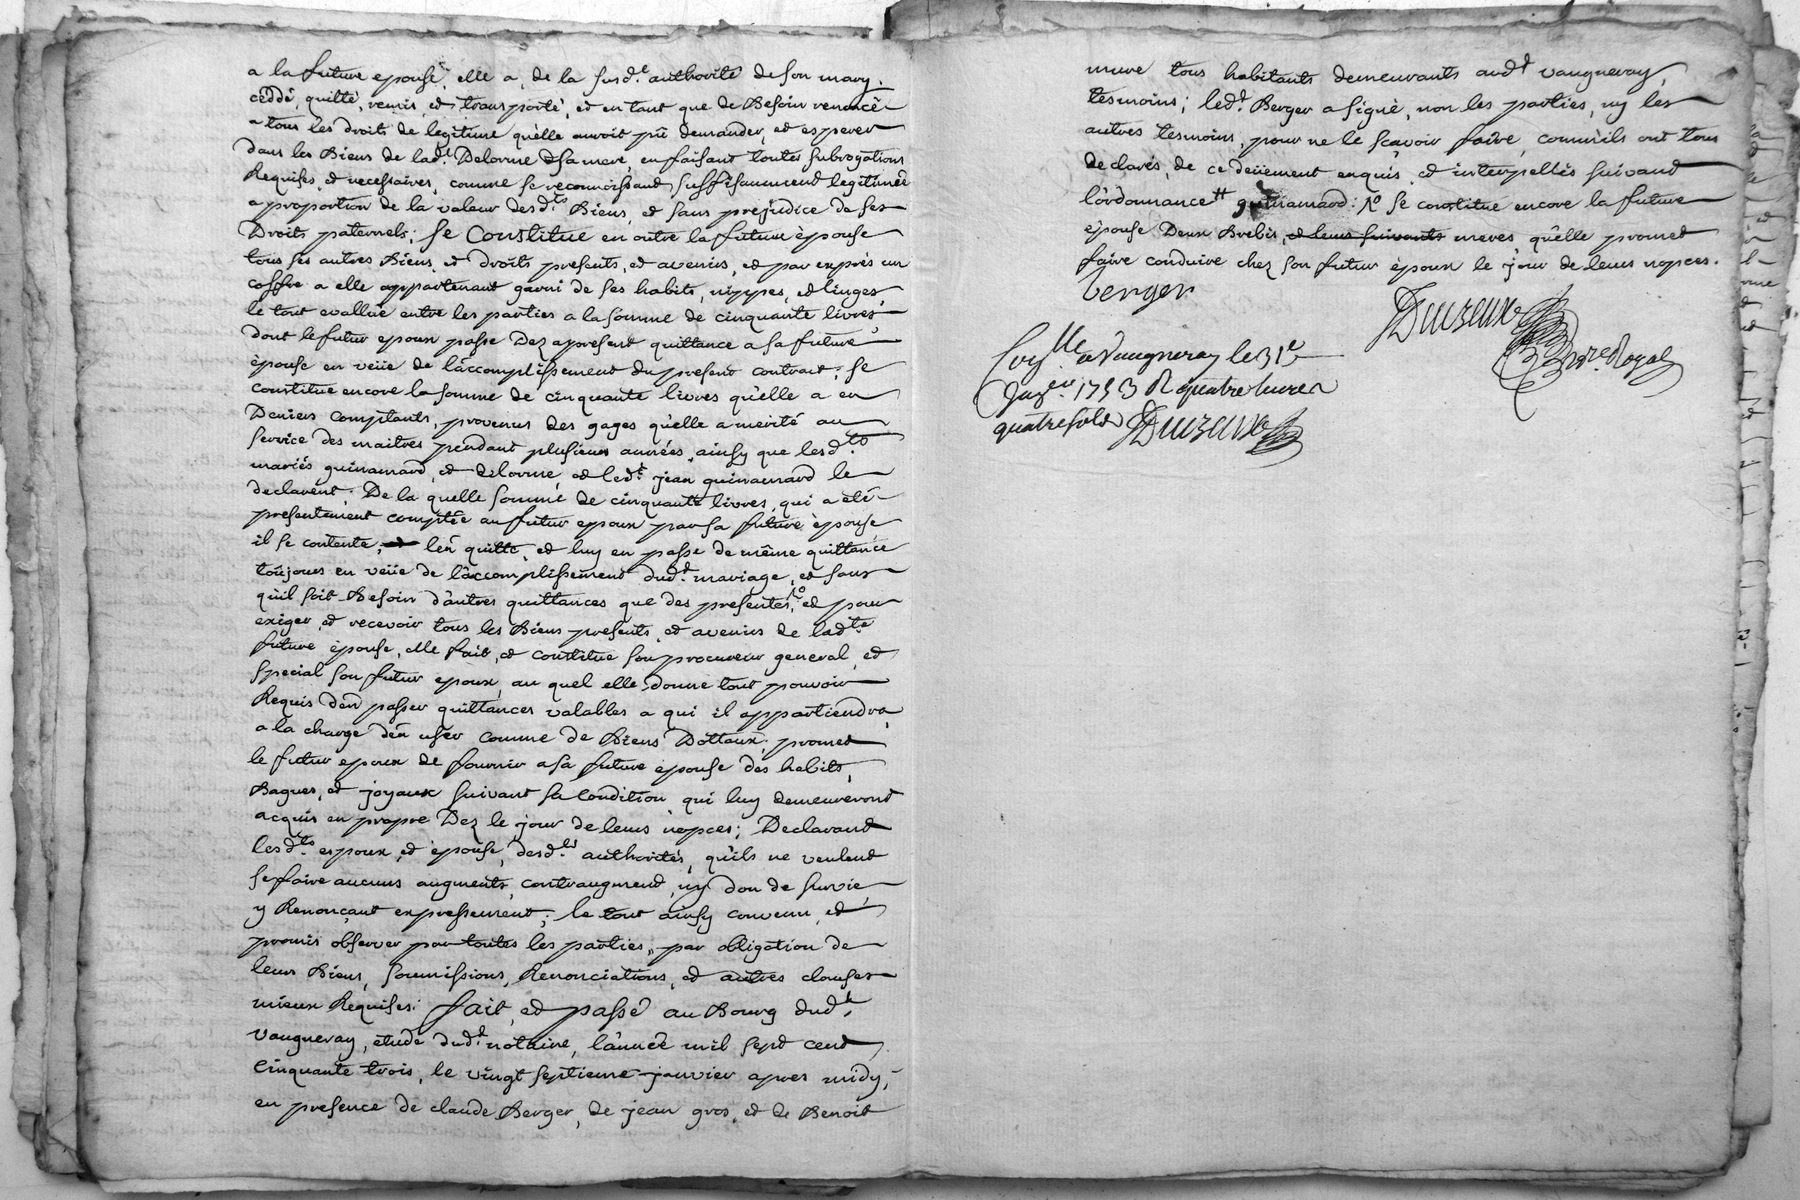 a la future epouse, elle a, de la susd.e authorité de son mary,
ceddé, quitté, remis, et transporté, et en tant que de Besoin renoncé
a tous les droits de legitime qu'elle auroit pû demander, et esperer
dans les Biens de lad.e Delorme sa mere, en faisant toutes subrogations
Requises, et necessaires, comme se reconnoissant suffisamment legitimée
a proportion de la valeur desd.ts Biens, et sans prejudice de ses
Droits paternels; Se Constitue en outre la future épouse
tous ses autres Biens, et droits presents, et avenirs, et par exprés un
coffre a elle appartenant garni de ses habits, nippes, et linges,
le tout evallué entre les parties a la somme de cinquante livres,
dont le futur epoux passe Dez apresent quittance a sa future
épouse en veüe de l'accomplissement du present contract; Se
constitue encore la somme de cinquante livres qu'elle a en
Deniers comptants, provenus des gages qu'elle a merité au
service des maitres pendant plusieurs années, ainsy que lesd.ts
mariés guinamard, et Delorme, et led.t jean guinamard le
declarent; De la quelle somme de cinquante livres, qui a été
presentement comptée au futur epoux par sa future épouse
il se contente, et l'en quitte, et luy en passe de même quittance
toûjours en veüe de l'accomplissement dud.t mariage, et sans
qu'il soit Besoin d'autres quittances que des presentes, R.o et pour
exiger, et recevoir tous les Biens presents, et avenirs de lad.te
future épouse, elle fait, et constitue son procureur general, et
special son futur epoux, au quel elle donne tout pouvoir
Requis d'en passer quittances valables a qui il appartiendra,
a la charge d'en user comme de Biens Dottaux; promet
le futur epoux de fournir a sa future épouse des habits,
Bagues, et joyaux suivant sa Condition, qui luy demeureront
acquis en propre Dez le jour de leurs nopces; Declarant
lesd.ts espoux, et épouse, desd.tes authorités, qu'ils ne veulent
se faire aucuns augments, contraugment, ny don de survie,
y Renonçant expressement; le tout ainsy convenu, et
promis observer par toutes les parties, par obligation de
leurs Biens, soumissions, Renonciations, et autres clauses
mieux Requises; fait, et passé au Bourg dud.t
Vaugneray, etude dud.t notaire, l'année mil sept cent
cinquante trois, le vingt septieme janvier apres midy,
en presence de claude Berger, de jean gros, et de Benoit
mure tous habitants demeurants aud.t vaugneray,
tesmoins; led.t Berger a signé, non les parties, ny les
autres tesmoins, pour ne le sçavoir faire, comm'ils ont tous
declarés, de ce deüement enquis, et interpellés suivant
l'ordonnance tt guinamard: R.o se constitue encore la future
épouse Deux Brebis, et leurs suivants meres, qu'elle promet
faire conduire chez son futur époux le jour de leurs nopces.
berger
Duzeux
no.re Royal
Con.lle a Vaugneray le 31e
janv.er 1753 R quatre livres
quatre sols Duzeux